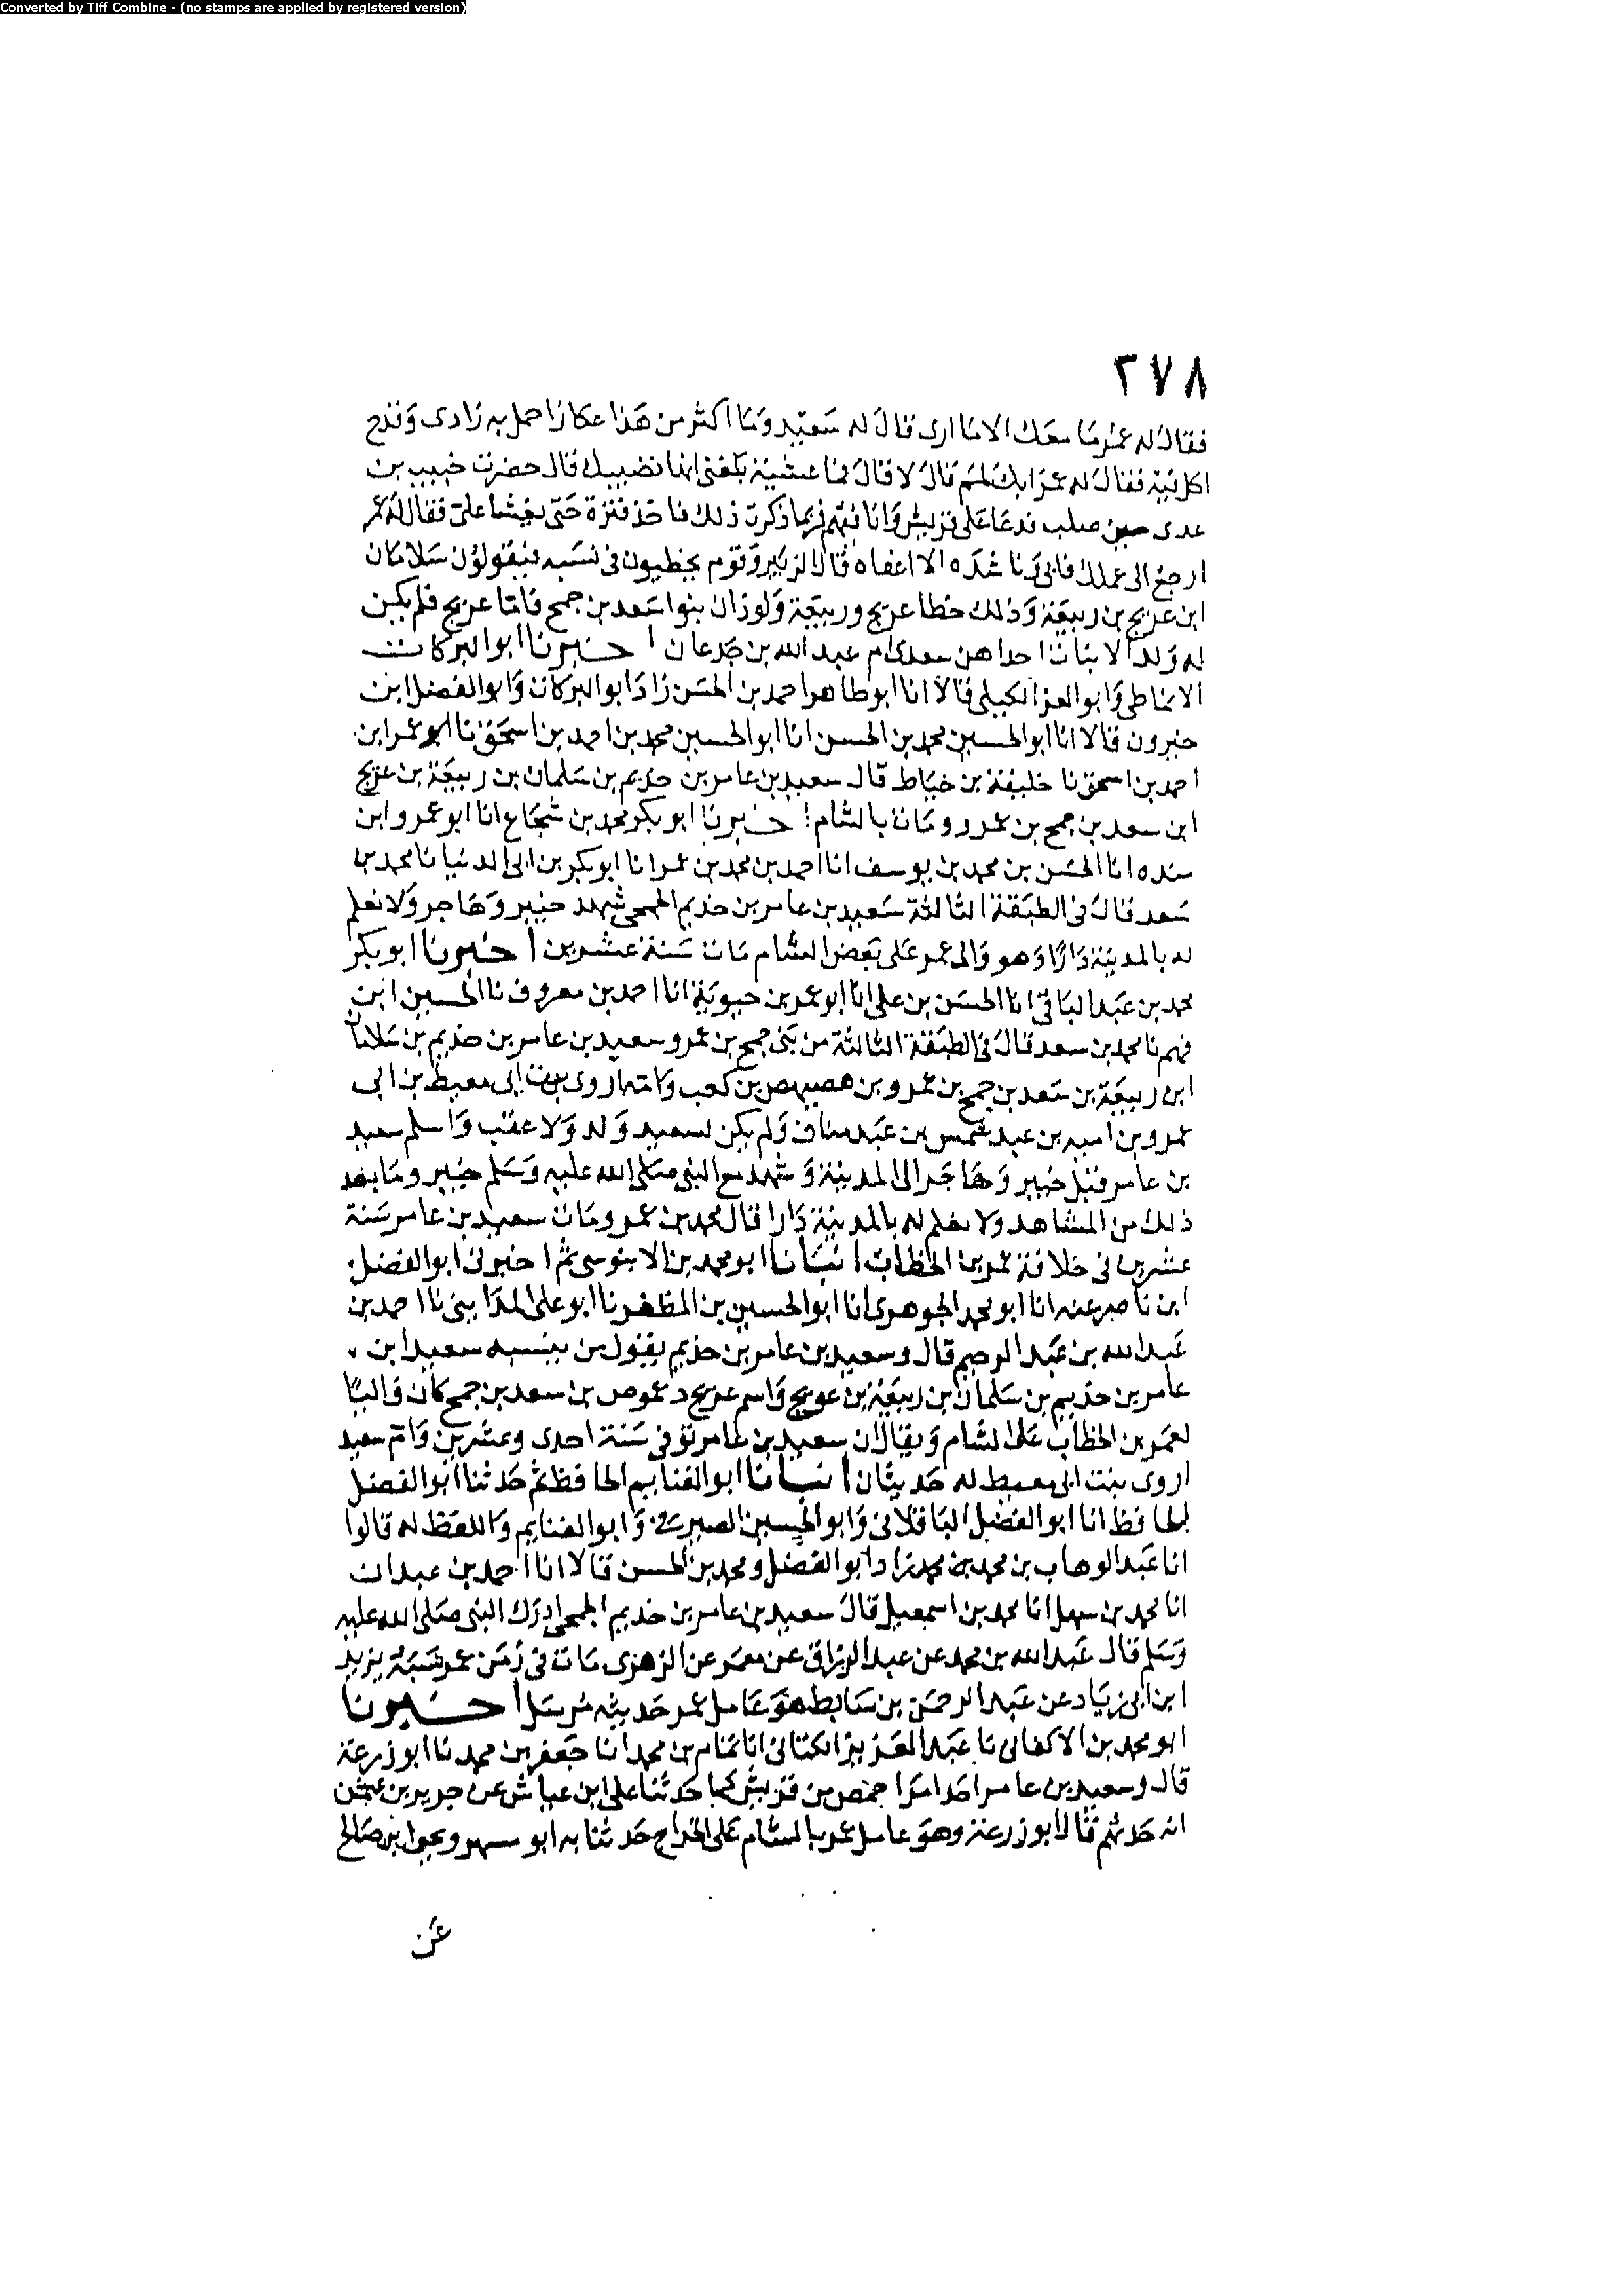 Converted by Tiff Combine - (no stamps are applied by registered version)
٢٧٨
فقال له عمر ما معك الا ما ارى قال له سعيد وما اكثر من هذا عكاز احمل به زادى وقدح
اكل فيه فقال له عمر ابك لمم قال لا قال فما غشية بلغنى انها تصيبك قال حضرت خبيب بن
عدى حين صلب فدعا على قريش وانا فيهم فربما ذكرت ذلك فاخذ فترة حتى يغشا على فقال له عمر
ارجع الى عملك فابى وناشده الا اعفاه قال الزبير وقوم يخطيون فى نسبه فيقولون سلامان
ابن عريج بن ربيعة وذلك خطا عريج وربيعة ولوزان بنوا سعد بن جمح فاما عريج فلم يكن
له ولد الا بنات احداهن سعدى ام عبد الله بن جدعان اخبرنا ابوا البركات
الانماطى وابو العز الكيلى قالا انا ابو طاهر احمد بن الحسن زاد ابو البركات وابو الفضل ابن
خيرون قالا انا ابو الحسين محمد بن الحسن انا ابو الحسين محمد بن احمد بن اسحق نا ابو عمر ابن
احمد بن اسحق نا خليفة بن خياط قال سعيد بن عامر بن حذيم بن سلمان بن ربيعة بن عريج
ابن سعد بن جمح بن عمرو ومات بالشام اخبرنا ابو بكر محمد بن شجاع انا ابو عمرو ابن
منده انا الحسن بن محمد بن يوسف انا احمد بن محمد بن عمر انا ابو بكر بن ابى الدنيا نا محمد بن
سعد قال فى الطبقة الثالثة سعيد بن عامر بن حذيم الجمحى شهد خيبر وهاجر ولا نعلم
له بالمدينة دارا وهو والى عمر على بعض الشام مات سنة عشرين اخبرنا ابو بكر
محمد بن عبد الباقى انا الحسن بن على انا ابو عمر بن حيوية انا احمد بن معروف نا الحسين ابن
فهم نا محمد بن سعد قال فى الطبقة الثالثة من بنى جمح بن عمرو سعيد بن عامر بن حذيم بن سلامان
ابن ربيعة بن سعد بن جمح بن عمرو بن هصيص بن كعب وامه اروى بنت ابى معيط بن ابى
عمرو بن اميه بن عبد شمس بن عبد مناف ولم يكن لسعيد ولد ولا عقب واسلم سعيد
بن عامر قبل خيبر وهاجر الى المدينة وشهد مع النبى صلى الله عليه وسلم خيبر وما بعد
ذلك من المشاهد ولا نعلم له بالمدينة دارا قال محمد بن عمر ومات سعيد بن عامر سنة
عشرين فى خلافة عمر بن الخطاب انبانا ابو محمد بن الابنوسى ثم اخبرنى ابو الفضل
ابن ناصر عنه انا ابو محمد الجوهرى انا ابو الحسين بن المظفر نا ابو على المداينى نا احمد بن
عبد الله بن عبد الرحيم قال وسعيد بن عامر بن حذيم يقول من ينسبه سعيد ابن
عامر بن حذيم بن سلمان بن ربيعة بن عويج واسم عريج دعموص بن سعد بن جمح كان واليا
لعمر بن الخطاب على الشام ويقال ان سعيد بن عامر توفى سنة احدى وعشرين وام سعيد
اروى بنت ابى معيط له حديثان انبانا ابو الغنايم الحافظ ثم حدثنا ابو الفضل
الحافظ انا ابو الفضل الباقلانى وابو الحسين الصيرفى وابو الغنايم واللفظ له قالوا
انا عبد الوهاب بن محمد بن محمد زاد ابو الفضل ومحمد بن الحسن قالا انا احمد بن عبدان
انا محمد بن سهل انا محمد بن اسمعيل قال سعيد بن عامر بن حذيم الجمحى ادرك النبى صلى الله عليه
وسلم قال عبد الله بن محمد عن عبد الرزاق عن معمر عن الزهرى مات فى زمن عمر نسبه يزيد
ابن ابى زياد عن عبد الرحمن بن سابط هو عامل عمر حديثه مرسل اخبرنا
ابو محمد بن الاكفانى نا عبد العزيز الكتانى انا تمام بن محمد انا جعفر بن محمد نا ابو زرعة
قال وسعيد بن عامر احد امرا حمص من قريش كما حدثنا على ابن عياش عن حريز بن عثمن
انه حدثهم قال ابو زرعة وهو عامل عمر بالشام على الخراج حدثنا به ابو مسهر ويحيا بن صالح
عن